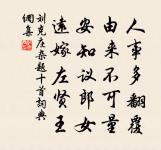 人事多翻覆
由来不可量
安知议郎女
遠嫁左贤王
刘克庄杂题十首詞典
網集